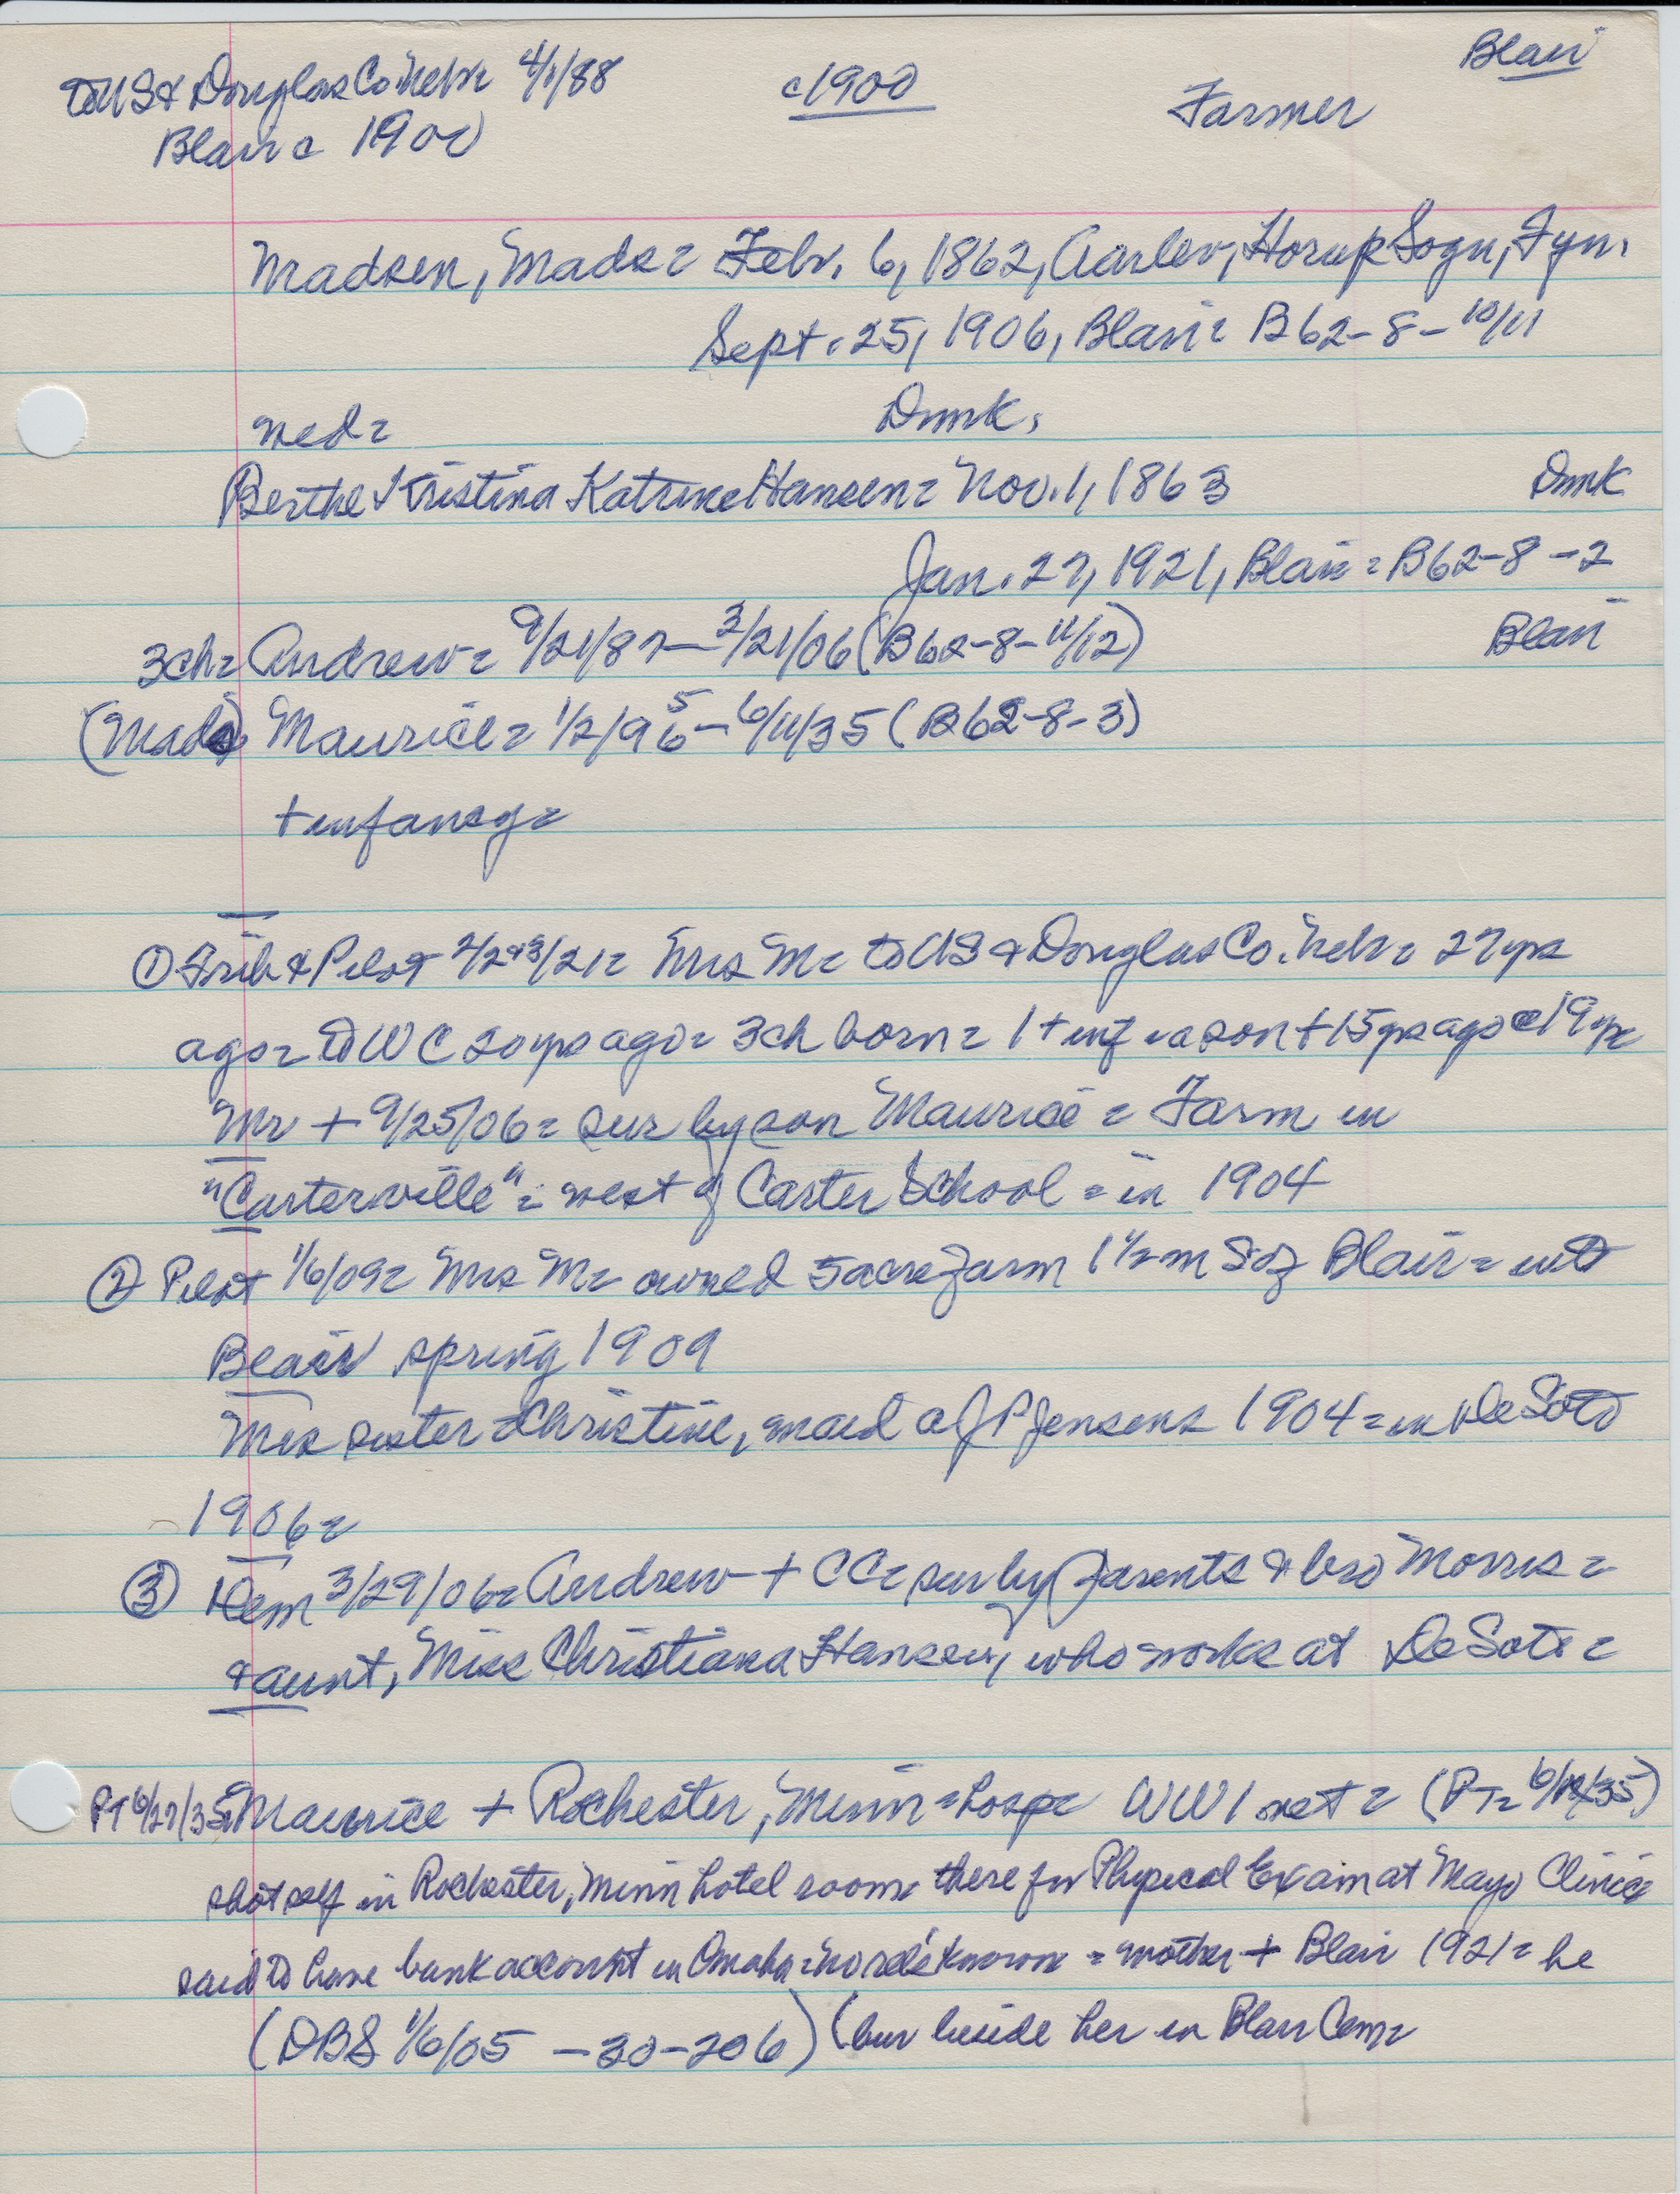 Blair
to US & Douglas Co. Nebr 4/1/88
c1900
Farmer
Blair c 1900
Madsen, Mads = Febr. 6, 1862, Aarlev, Horup Sogn, Fyn.
Sept. 25, 1906, Blair = B62-8-10/11
wed =
Dmk.
Berthe Kristina Katrine Hansen = Nov. 1, 1863
Dmk
Jan. 27, 1921, Blair = B62-8-2
3ch = Andrew = 9/21/87 - 3/21/06 (B62-8-11/12)
Blair
(Mads) Maurice = 1/2/96 5 - 6/11/35 (B62-8-3)
+ infancy =
① Trib & Pilot 2/2&3/21 = Mrs M = to US & Douglas Co. Nebr = 27 yrs
ago = to WC 20 yrs ago = 3ch born = 1 + inf = a son + 15 yrs ago @ 19 yrs
Mr + 9/25/06 = sur by son Maurice = Farm in
"Carterville" = west of Carter School = in 1904
② Pilot 1/6/09 = Mrs M = owned 5 acre farm 1 1/2 m S of Blair = into
Blair spring 1909
Mrs sister = Christine, maid @ J P Jensens 1904 = in DeSoto
1906 =
③ Dem 3/29/06 = Andrew + CC = sur by parents & bro Morris =
& aunt, Miss Christiana Hansen, who works at DeSoto =
PT 6/27/35 = Maurice + Rochester, Minn = hosp = WW1 vet = (PT = 6/ /35)
shot self in Rochester, Minn hotel room there for Physical Exam at Mayo Clinic
said to have bank account in Omaha = no rels known = mother + Blair 1921 = he
(DBS 1/6/05 - 30-206) (bur beside her in Blair Cem =